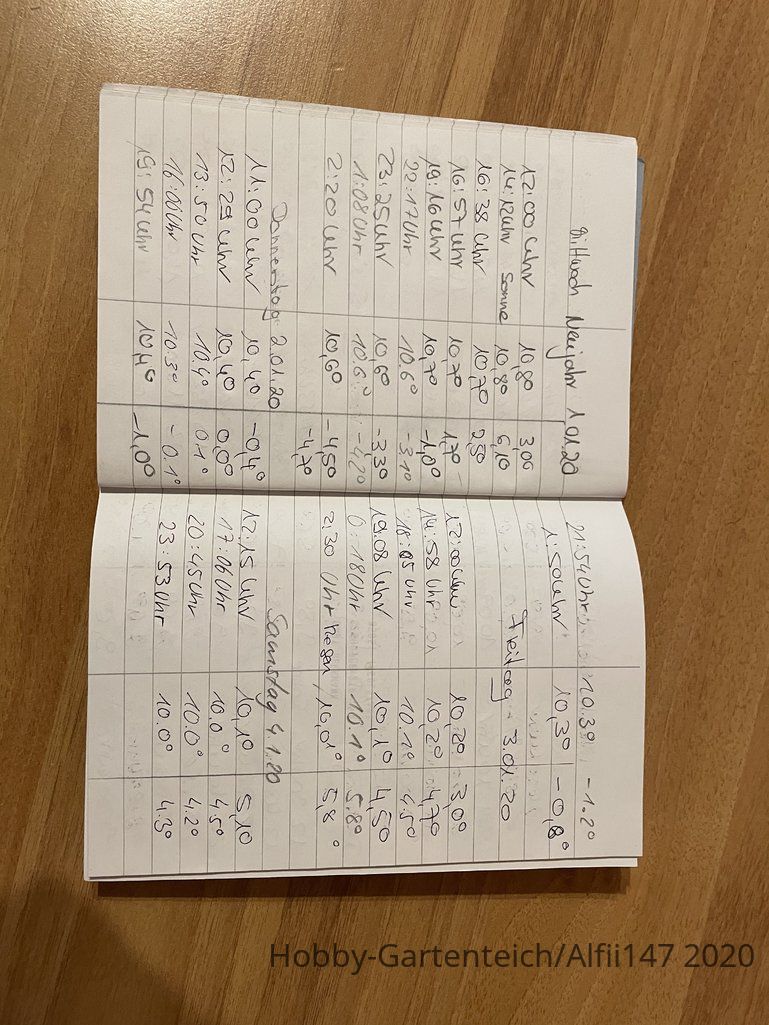 Mittwoch Neujahr 1.01.20
12:00 Uhr 10,8° 3,0°
14:12 Uhr Sonne 10,8° 6,1°
16:38 Uhr 10,7° 2,8°
16:57 Uhr 10,7° 1,7°
19:16 Uhr 10,7° -1,0°
22:17 Uhr 10.6° -3.1°
23:25 Uhr 10,6° -3,3°
1:08 Uhr 10.6° -4,2°
2:20 Uhr 10,6° -4,5°
-4,7°
Donnerstag 2.01.20
11:00 Uhr 10,4° -0,4°
12:29 Uhr 10,4° 0,0°
13:50 Uhr 10.4° 0.1°
16:00 Uhr 10.3° -0.1°
19:54 Uhr 10,4° -1,0°
21:54 Uhr 10.3° -1.2°
1:50 Uhr 10,3° -0,8°
Freitag 3.01.20
12:00 Uhr 10,2° 3,0°
14:58 Uhr 10,2° 4,7°
18:05 Uhr 10.2° 4,5°
19:08 Uhr 10,1° 4,5°
0:18 Uhr 10.1° 5.8°
2:30 Uhr Regen 10,0° 5,8°
Samstag 4.1.20
12:15 Uhr 10,1° 5,1°
17:06 Uhr 10.0° 4.5°
20:45 Uhr 10.0° 4.2°
23:53 Uhr 10.0° 4.3°
Hobby-Gartenteich/Alfii147 2020